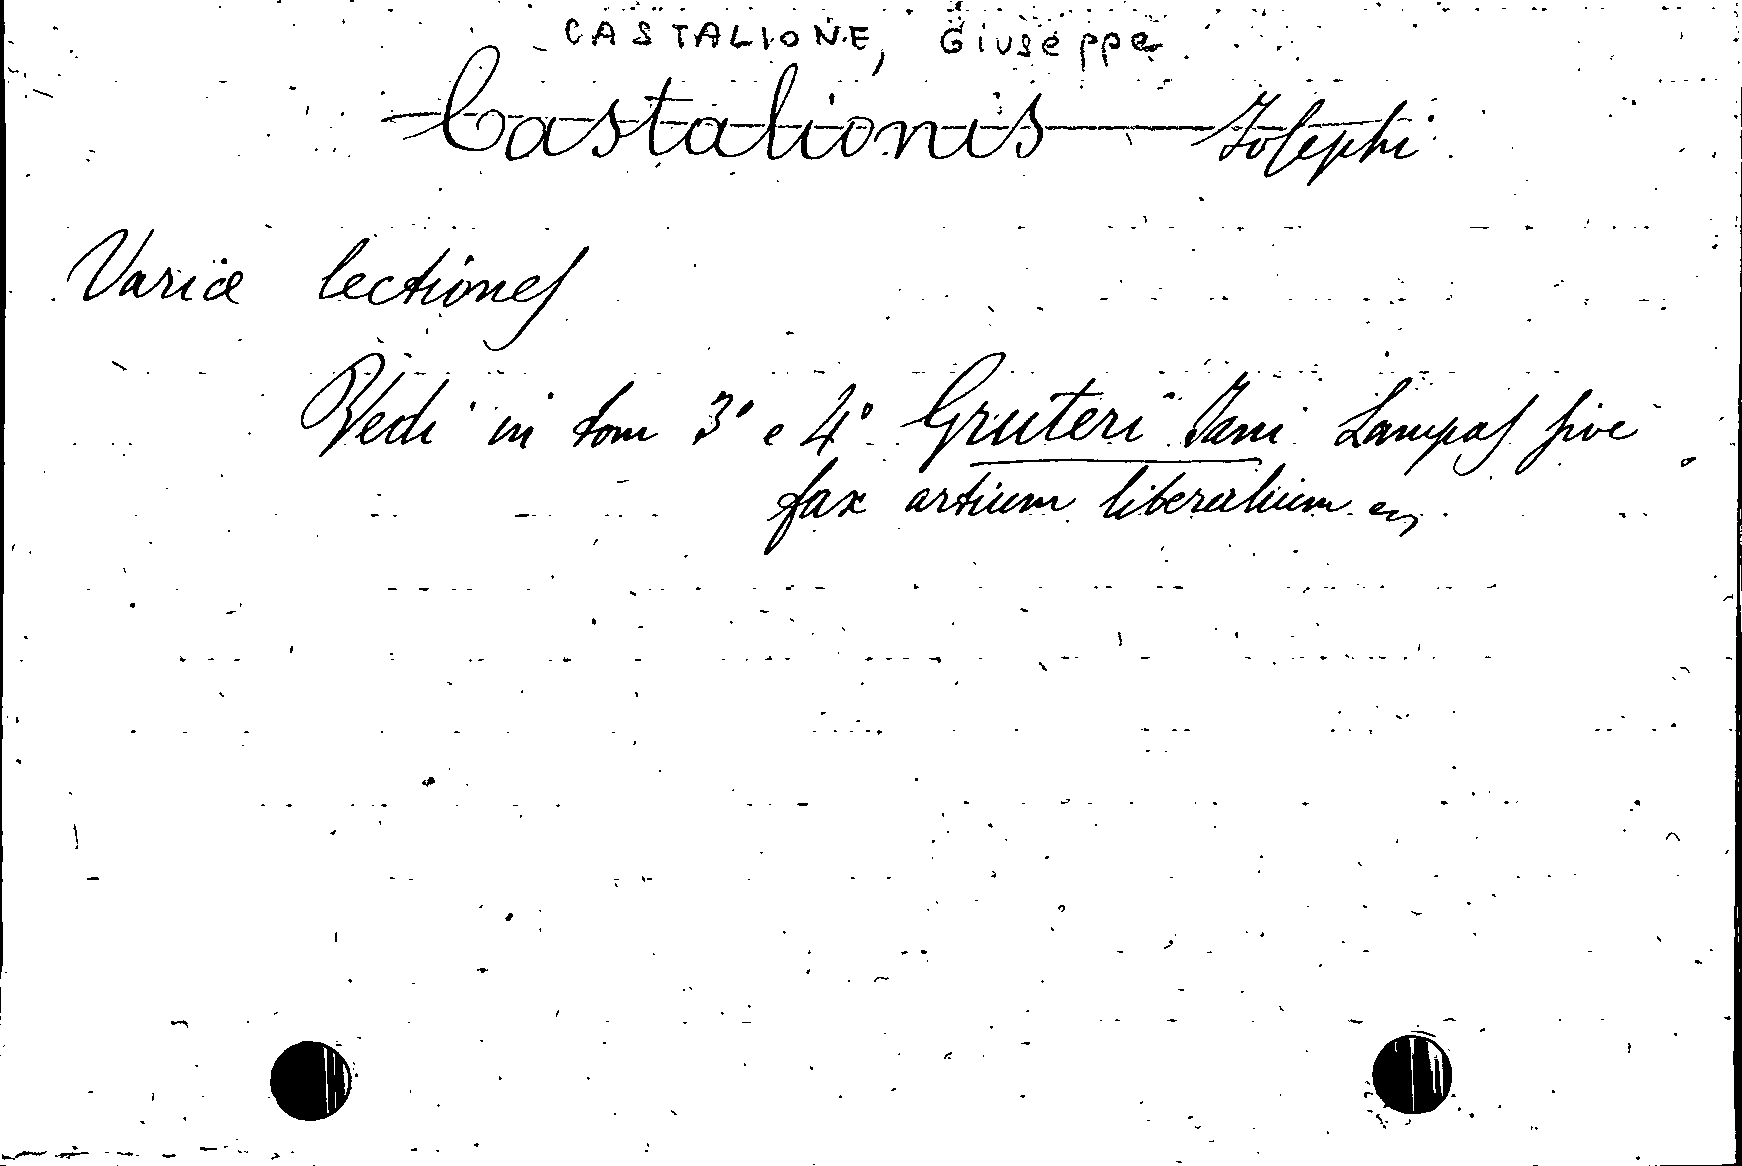 CASTALIONE, Giuseppe
Castalionis Iosephi
Variæ lectiones
Vedi in tom 3° e 4° Gruteri Jani Lampas sive
fax artium liberalium